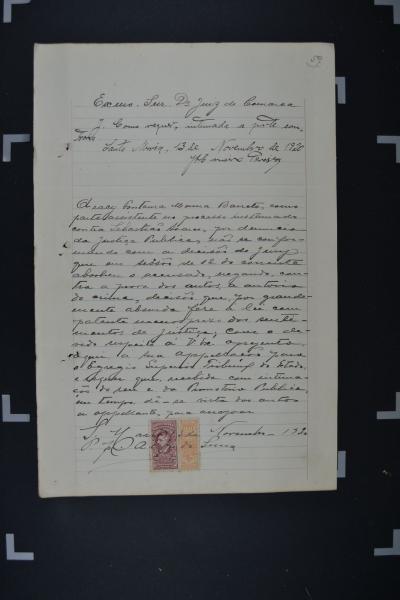 Exmo. Snr. Dr. Juiz de Comarca
J. Como requer, intimada a parte con-
traria
Santa Maria, 3 de Novembro de 1920
Fontoura Menna Barreto, como
parte assistente no processo instaurado
contra Sebastião Soares, por denuncia
da Justiça Publica, não se confor-
mando com a decisão do Jury,
que em sessão de 12 do corrente
absolveu o accusado, negando, con-
tra a prova dos autos, a autoria
do crime, decisão que, por grande-
mente absurda, fere a lei com
patente menospreso dos senti-
mentos de justiça, com o de-
vido respeito á V. Exc. apresenta
aqui a sua appellação para
o Egregio Superior Tribunal do Estado,
e requer que, recebida com intima-
ção do reu e do Promotor Publico,
em tempo, dê-se vista dos autos
a appellante, para arrazoar
S. Maria de Novembro 1920